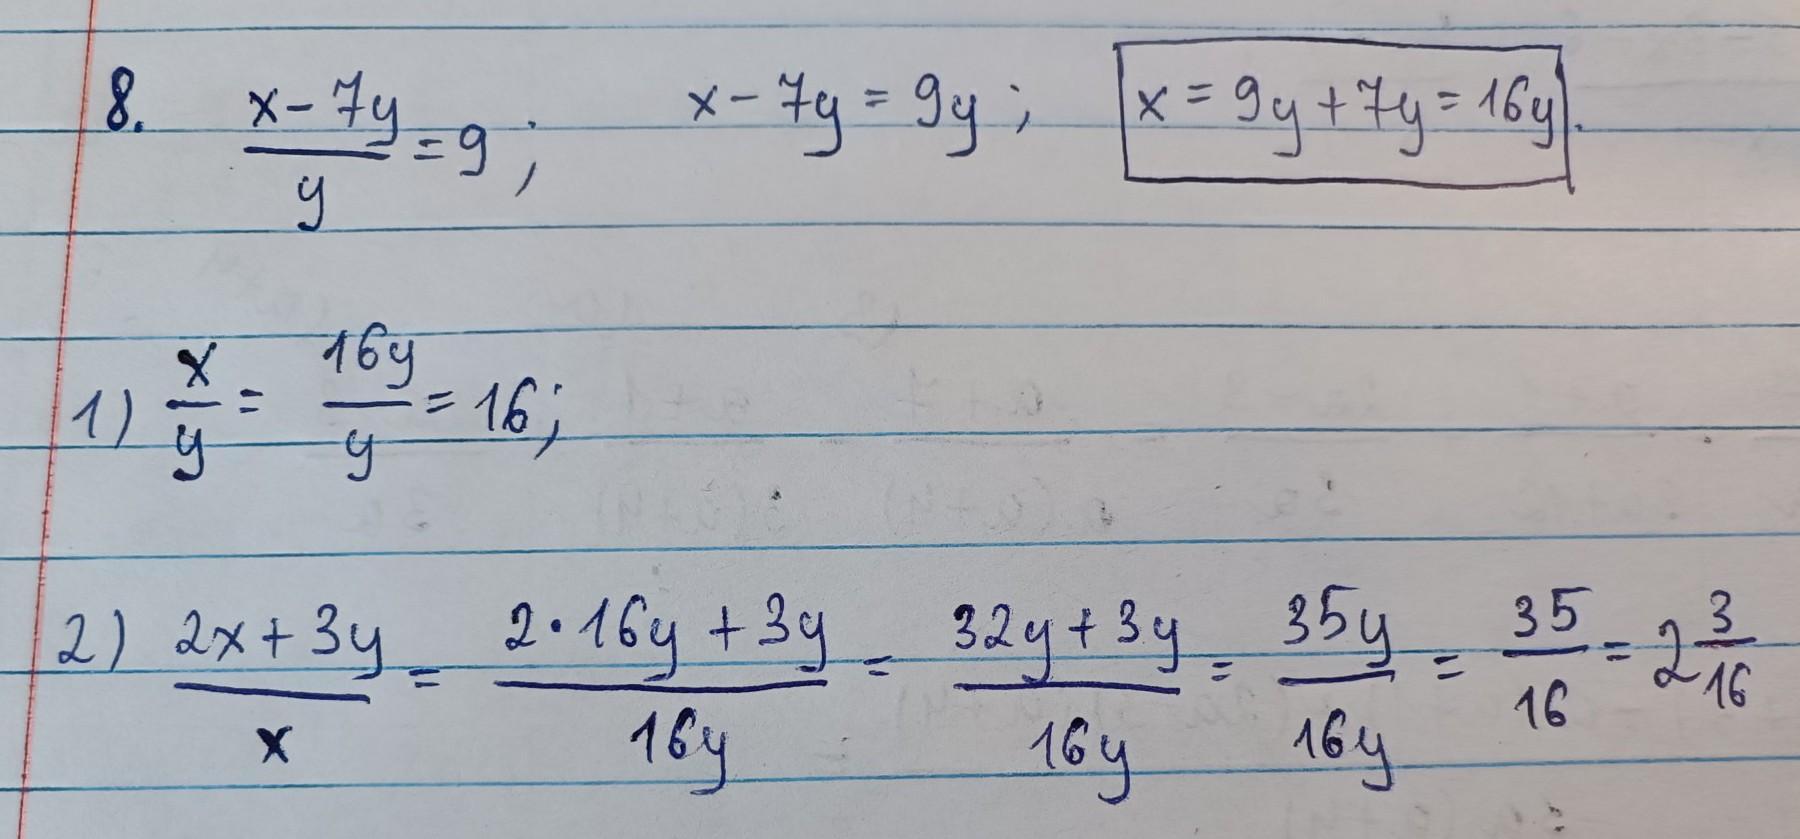 8. (x - 7y)/y = 9; x - 7y = 9y; x = 9y + 7y = 16y.
1) x/y = 16y/y = 16;
2) (2x + 3y)/x = (2·16y + 3y)/16y = (32y + 3y)/16y = 35y/16y = 35/16 = 2 3/16